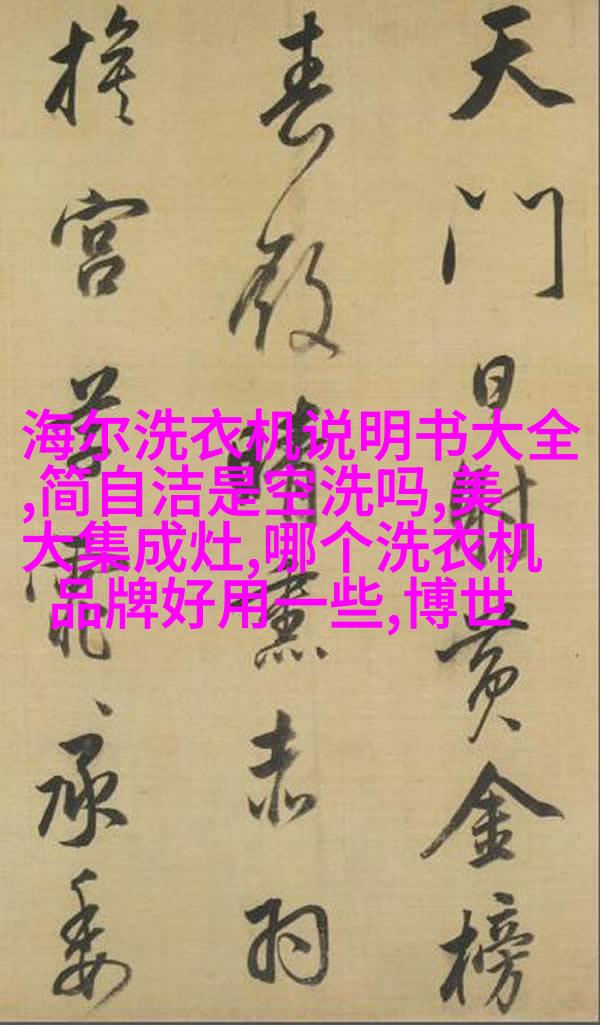 天門日射黃金榜
春殿晴熏赤羽
旗宮草霏〻承委
海尔洗衣机说明书大全
,简自洁是空洗吗,美
大集成灶,哪个洗衣机
品牌好用一些,博世